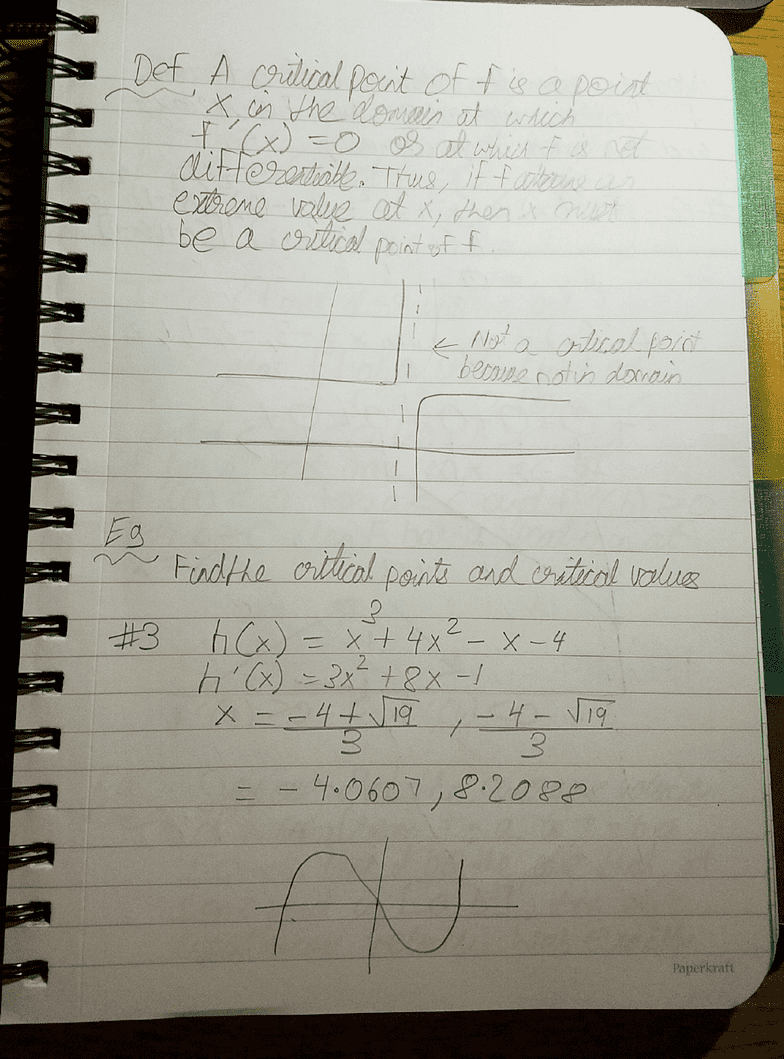 Def. A critical point of f is a point
x in the domain at which
f'(x) = 0 or at which f is not
differentiable. Thus, if f assume an
extreme value at x, then x must
be a critical point of f.
← Not a critical point
because not in domain
Eg
Find the critical points and critical values
#3 h(x) = x³ + 4x² - x - 4
h'(x) = 3x² + 8x - 1
x = (-4 + √19)/3 , (-4 - √19)/3
= -4.0607, 8.2088
Paperkraft